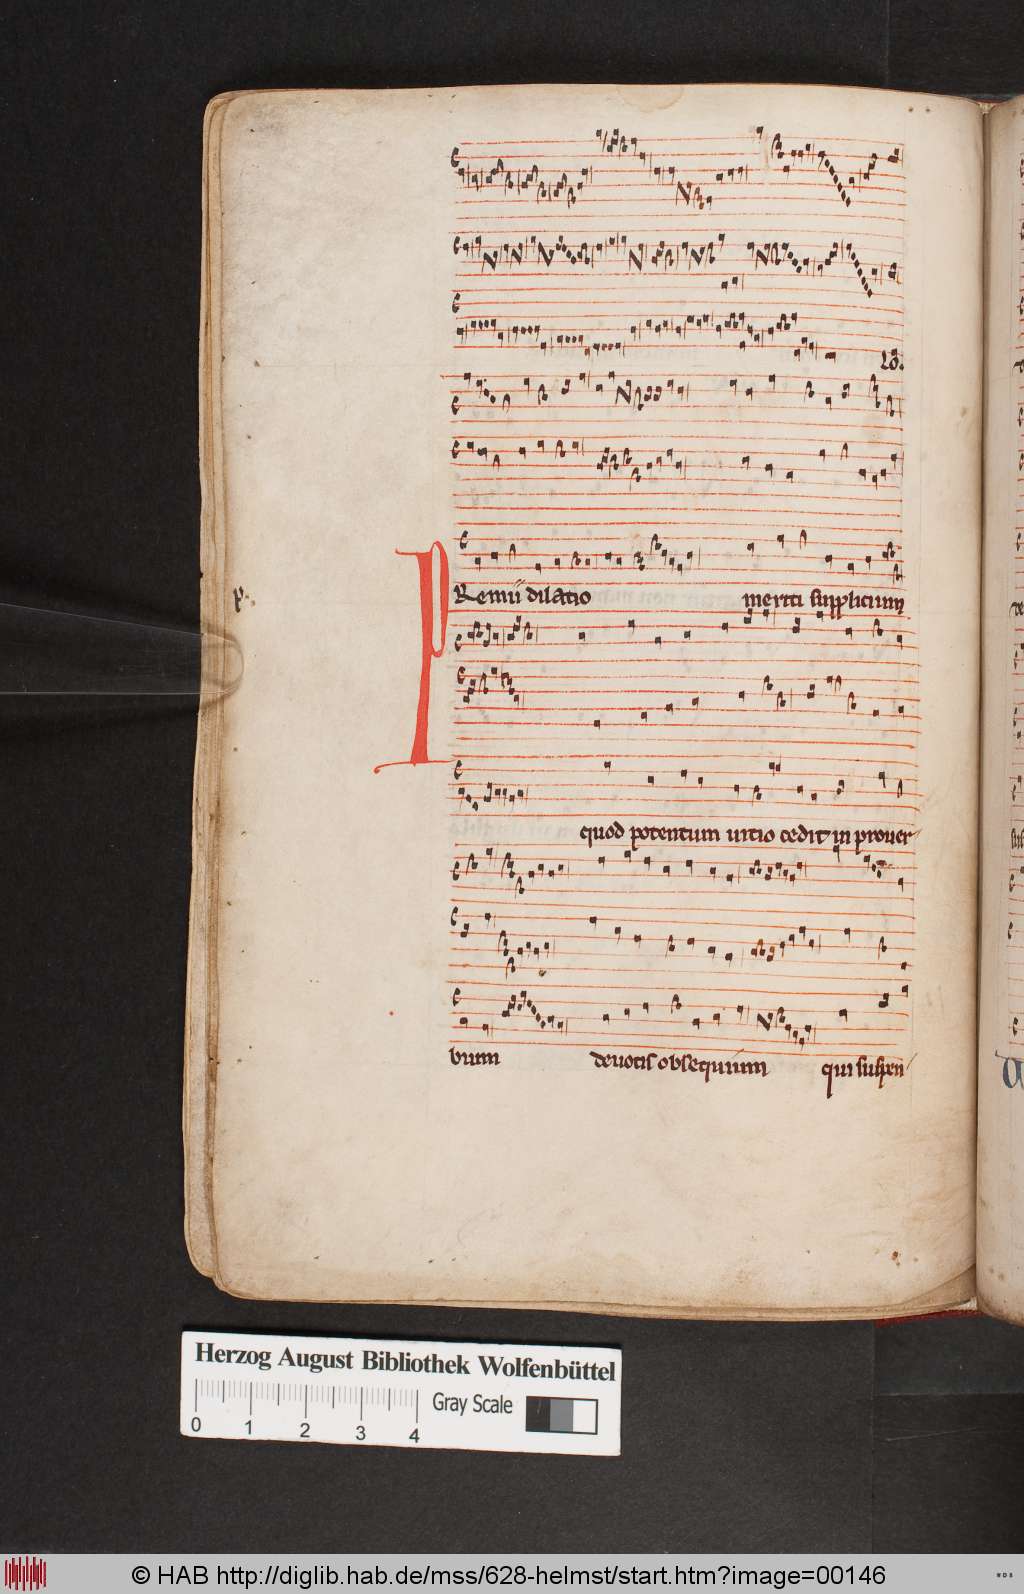 lo.
p.
PRemii dilatio meriti supplicium
quod potentum uitio cedit in prouer
bium deuotis obsequium qui suspen
Herzog August Bibliothek Wolfenbüttel
0 1 2 3 4 Gray Scale
© HAB http://diglib.hab.de/mss/628-helmst/start.htm?image=00146